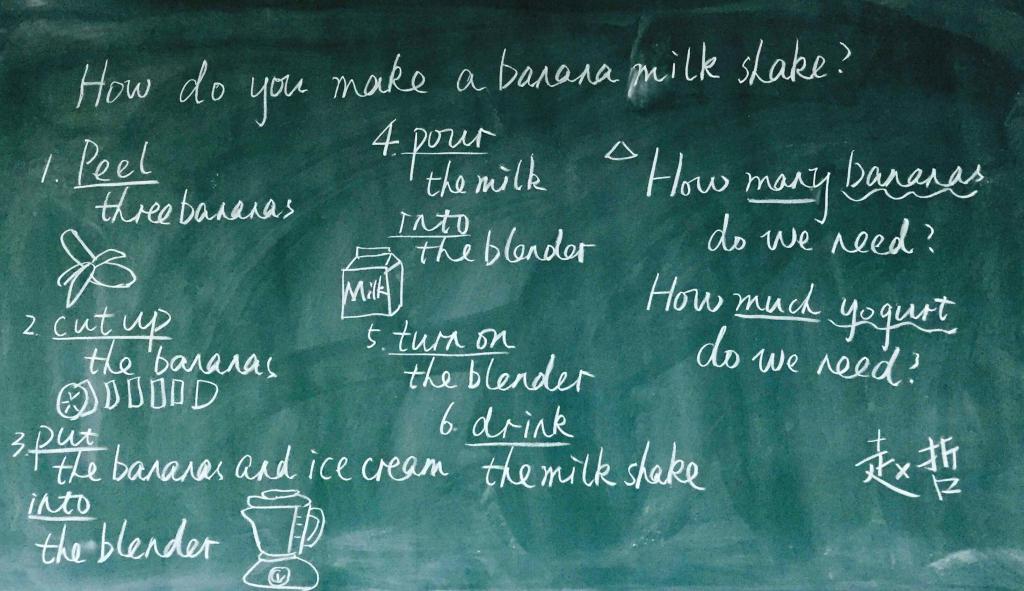 How do you make a banana milk shake?
1. Peel
three bananas
2. cut up
the bananas
3. put
the bananas and ice cream
into
the blender
4. pour
the milk
into
the blender
Milk
5. turn on
the blender
6. drink
the milk shake
△ How many bananas
do we need?
How much yogurt
do we need?
赵哲